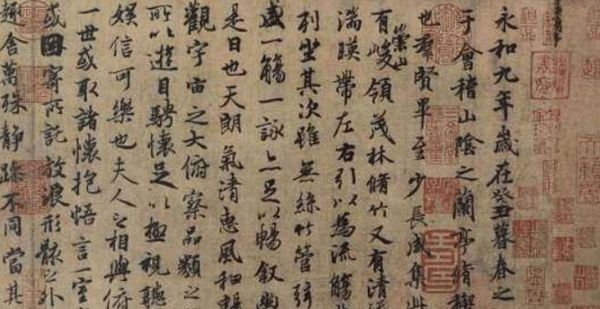 永和九年歲在癸丑暮春之
于會稽山陰之蘭亭脩禊
也羣賢畢至少長咸集此
崇山
有峻領茂林脩竹又有清
湍暎帶左右引以為流觴
列坐其次雖無絲竹管弦
盛一觴一詠亦足以暢叙幽
是日也天朗氣清惠風和暢
觀宇宙之大俯察品類之
所以遊目騁懷足以極視聽
娛信可樂也夫人之相與俯
一世或取諸懷抱悟言一室
或因寄所託放浪形骸之外
趣舍萬殊靜躁不同當其